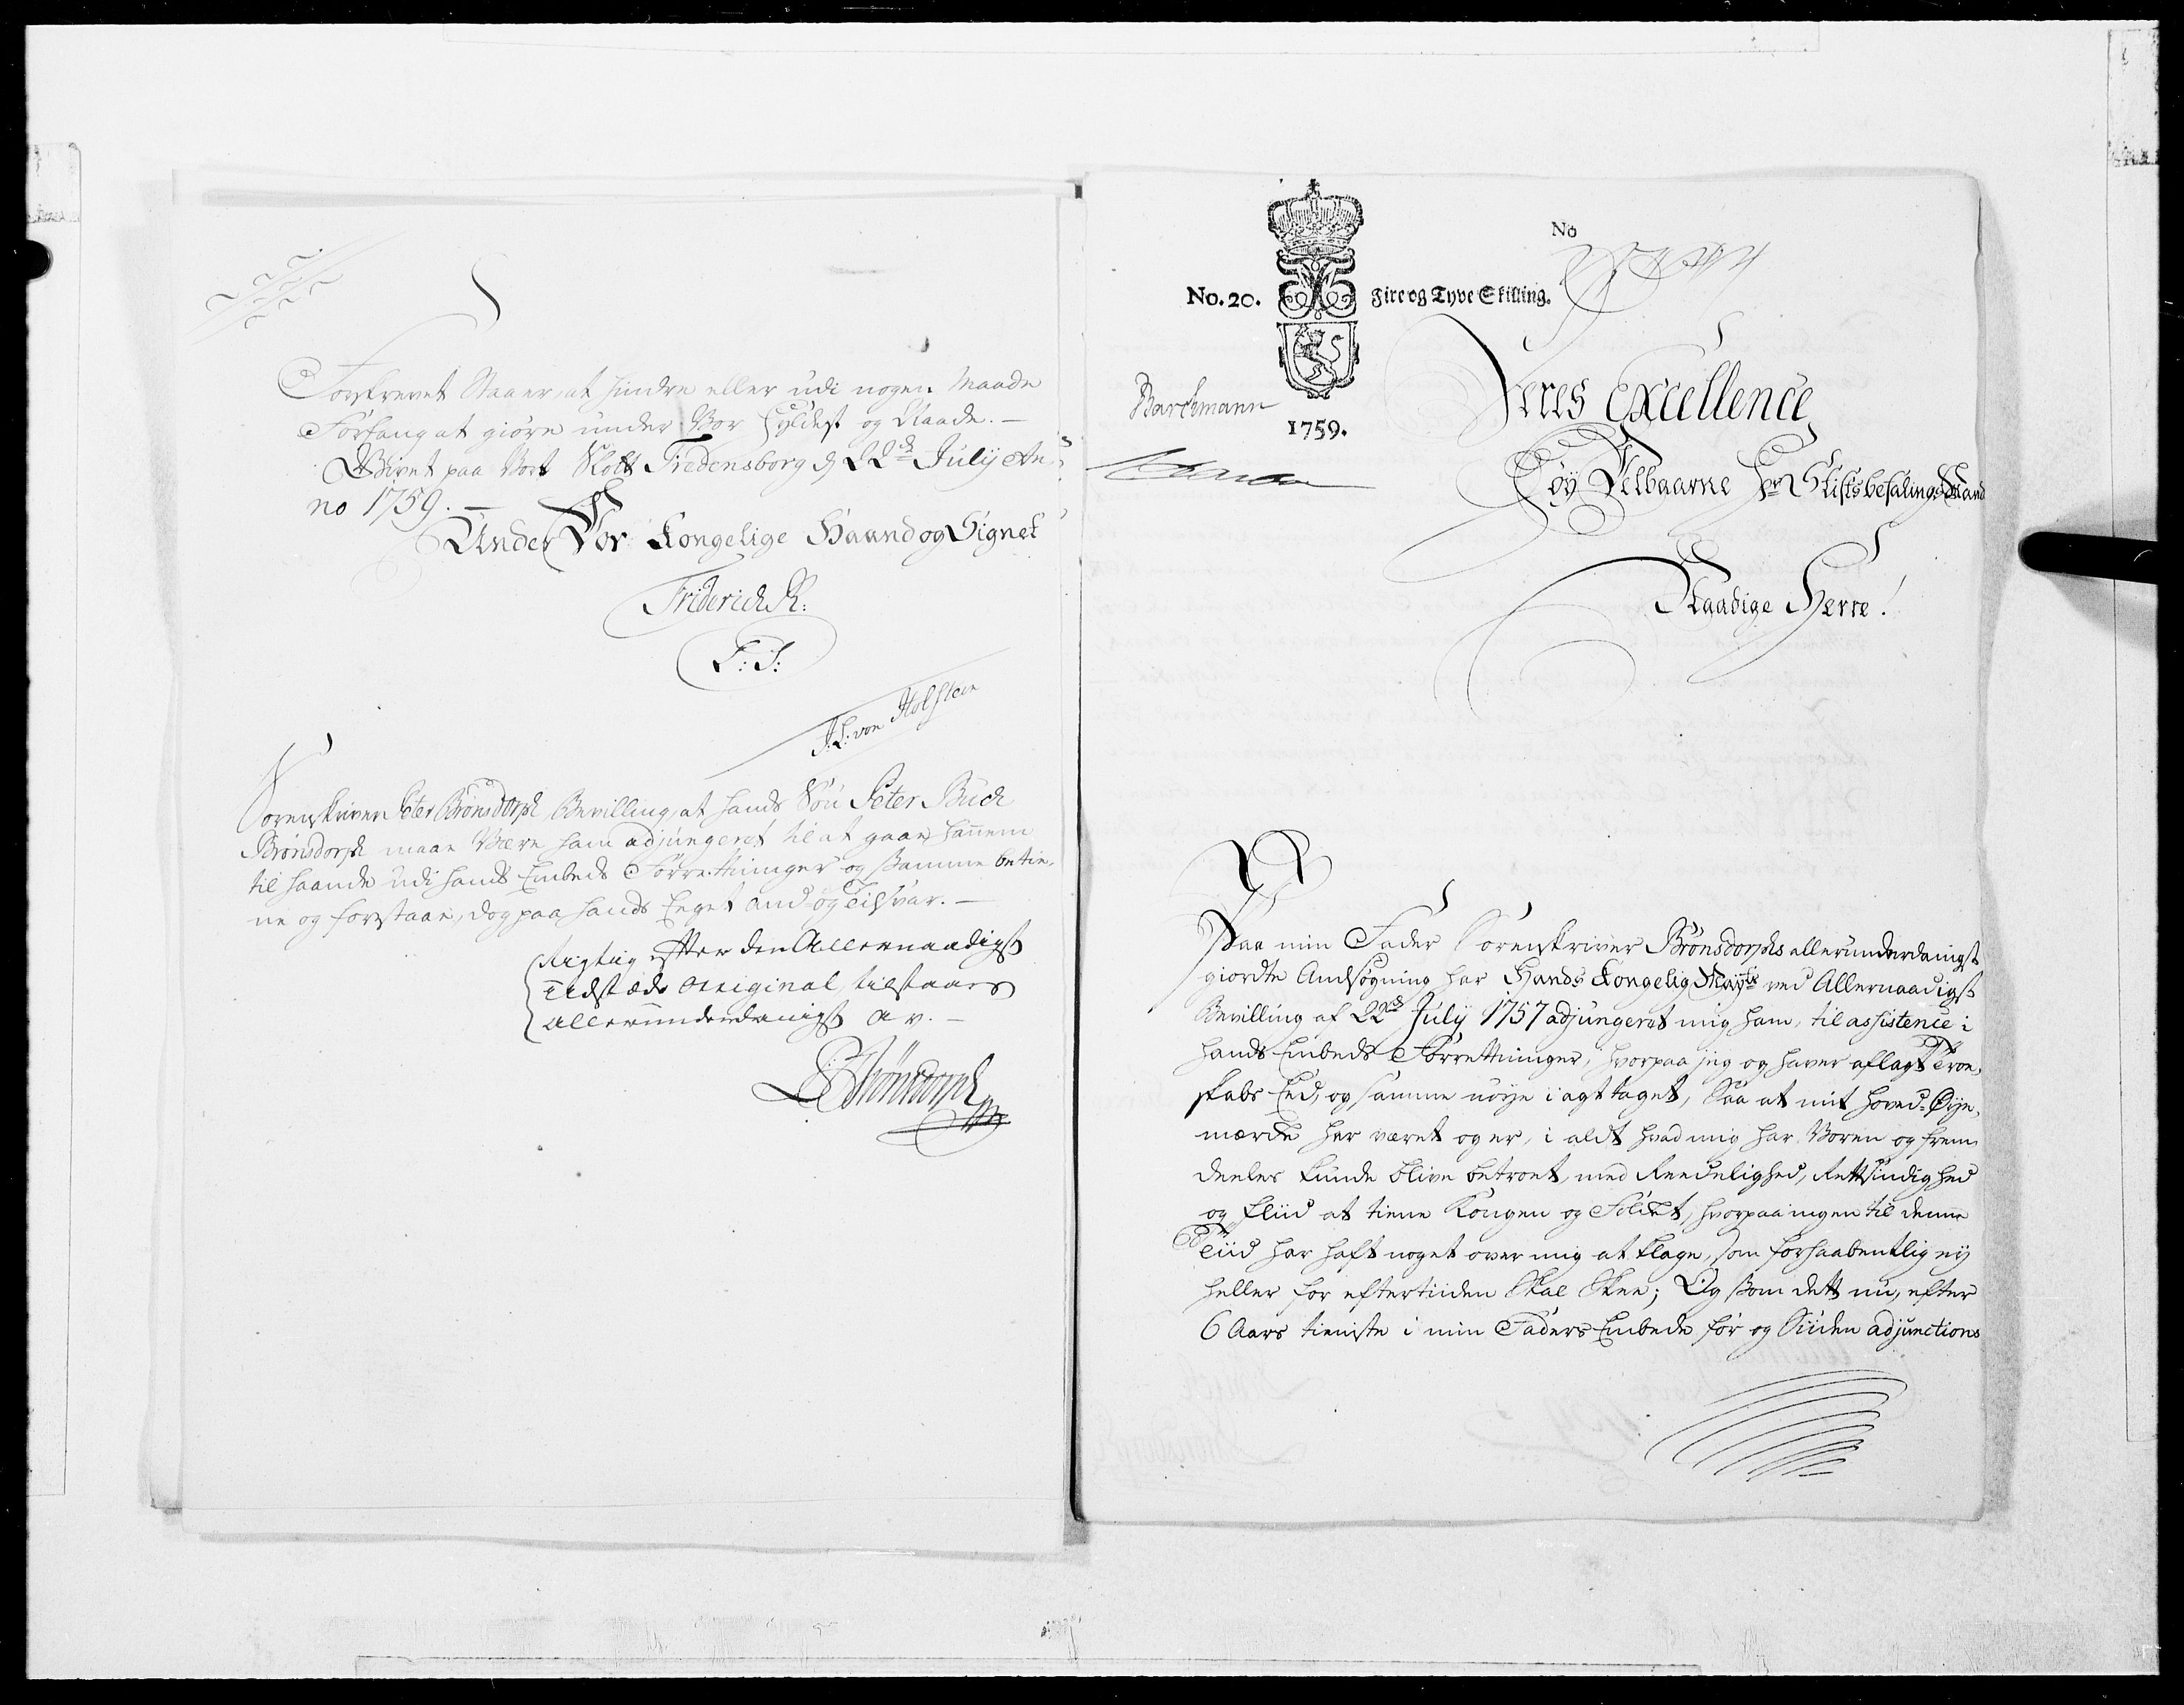 Forskrevet Staaer, at hindre eller udi nogen Maade
Forfang at giöre under Vor Hyldest og Naade. —
Givet paa Vort Slott Fredensborg d 22de July An-
no 1759. —
Under Vor Kongelige Haand og Signet
Friderich R:
L: S:
J: L: von Holstein
Sorenskriver Peter Brönsdorph Bevilling, at hands Sön Peter Buch
Brönsdorph maae Være ham adjungeret til at gaae hannem
til haande udi hands Embeds Forrettninger og samme betie-
ne og forestaae, dog paa hands Eget And- og Tilsvar. —
Rigtig effter den Allernaadigst
Udstæde Original tilstaaes
Allerunderdanigst av. —
Brönsdorph
No
No. 20.
Fire og Tyve Skilling.
Barchmann
1759.
Deres Excellence
Höy Velbaarne Hr Stiftsbefalings Mand
Naadige Herre!
Paa min Fader Sorenskriver Brönsdorphs allerunderdanigst
giordte Ansögning har Hands Kongelig Mayts ved Allernaadigst
Bevilling af 22de July 1757 adjungeret mig ham, til assistence i
hands Embeds Forrettninger, hvorpaa jeg og haver aflagt Troe-
skabs Eed, og samme nöye i agt taget, Saa at mit hoved-Öye-
mærke har været og er, i aldt hvad mig har Voren og frem-
deeles kunde blive betroet, med Reedelighed, Rettsindighed
og Fliid at tiene Kongen og Folket, hvorpaa ingen til denne
Tiid har haft noget over mig at klage, som forhaabentlig ey
heller for eftertiiden Skal Skee; Og som dett nu, efter
6 Aars tieniste i min Faders Embede för og Siiden adjunctions